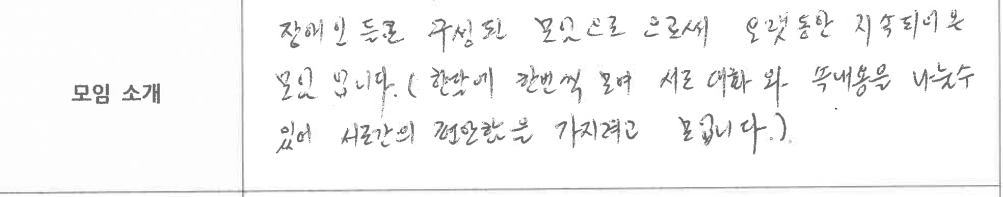 장애인 들로 구성된 모임으로 으로써 오랫동안 지속되어온
모임 소개
모임 입니다. (한달에 한번씩 모여 서로 대화 와 속내용을 나눌수
있어 서로간의 편안함을 가지려고 모입니다.)